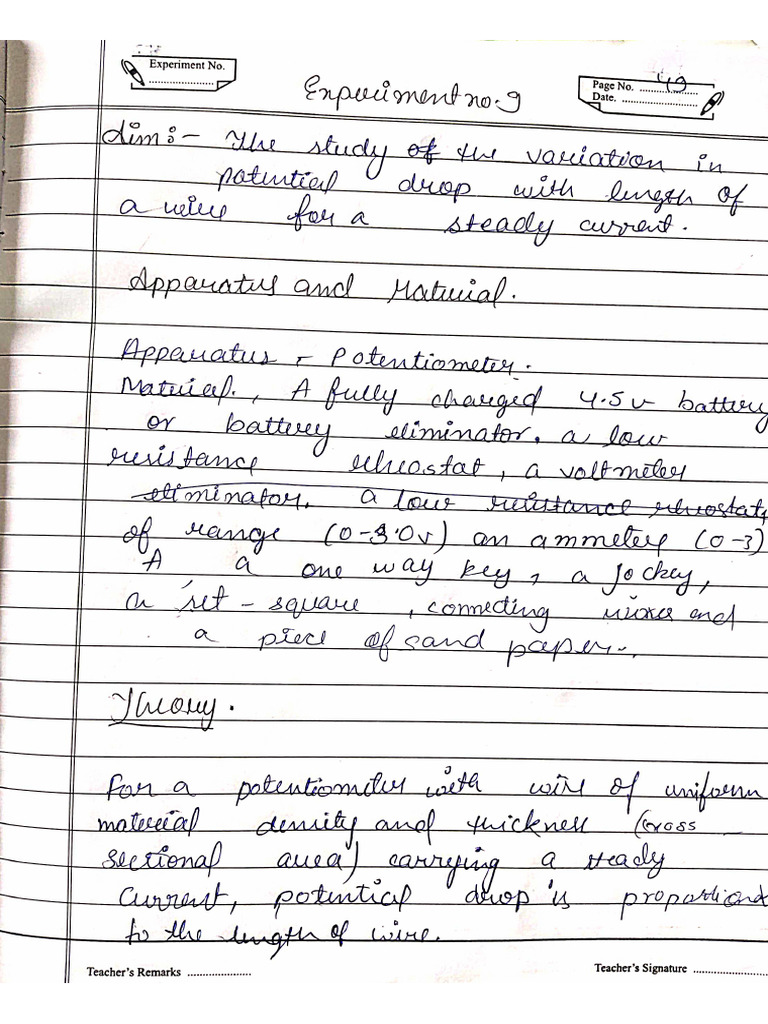 Experiment No. ..................
Experiment no. 9
Page No. 49
Date. ..................
Aim:- The study of the variation in
potential drop with length of
a wire for a steady current.
Apparatus and Material.
Apparatus - Potentiometer.
Material., A fully charged 4.5v battery
or battery eliminator. a low
resistance rheostat, a voltmeter
eliminator. a low resistance rheostat,
of range (0-3.0v) an ammeter (0-3)
A a one way key, a jockey,
a set-square, connecting wires and
a piece of sand paper.
Theory.
For a potentiometer with wire of uniform
material density and thickness (cross
sectional area) carrying a steady
current, potential drop is proportional
to the length of wire.
Teacher's Remarks ..................
Teacher's Signature ..................